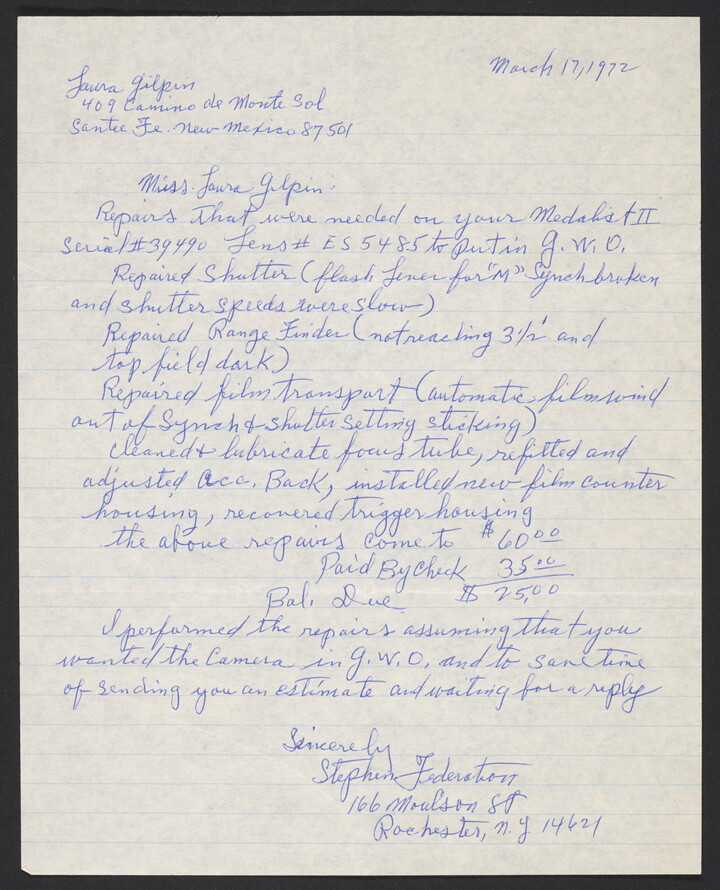 March 17, 1972
Laura Gilpin
409 Camino de Monte Sol
Santa Fe. New Mexico 87501
Miss. Laura Gilpin:
Repairs that were needed on your Medalist II
Serial #39490 Lens # ES 5485 to put in G. W. O.
Repaired Shutter (flash Lever for "M" Synch broken
and shutter speeds were slow)
Repaired Range Finder (not reaching 3 1/2' and
top field dark)
Repaired film transport (automatic film wind
out of Synch & shutter setting sticking)
cleaned & lubricate focus tube, refitted and
adjusted Acc. Back, installed new film counter
housing, recovered trigger housing
the above repairs come to $ 60.00
Paid By Check 35.00
Bal. Due $ 25.00
I performed the repairs assuming that you
wanted the Camera in G. W. O. and to save time
of sending you an estimate and waiting for a reply
Sincerely
Stephen Federation
166 Moulson St
Rochester, N. Y. 14621